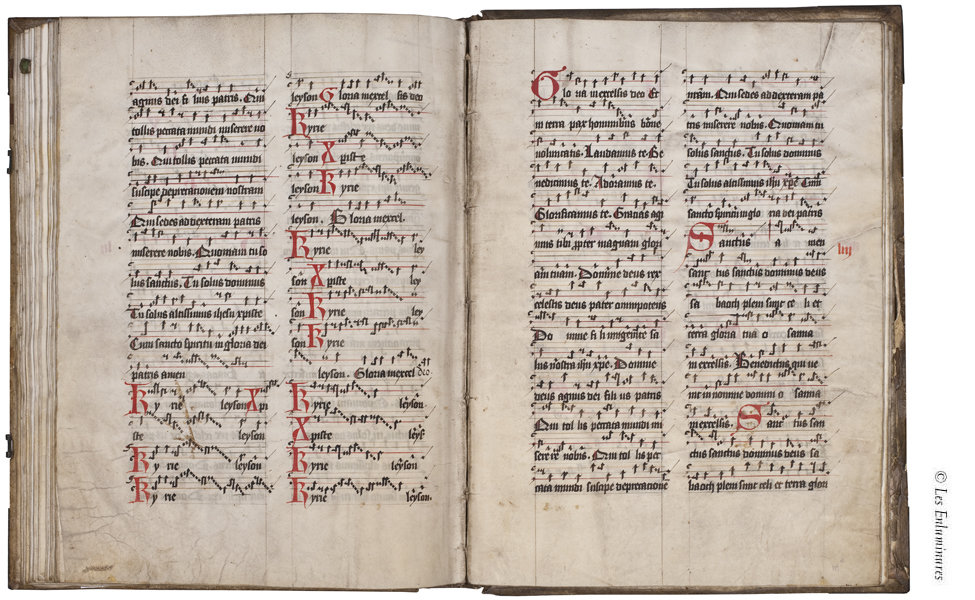 agnus dei fi lius patris. Qui
tollis peccata mundi miserere no
bis. Qui tollis peccata mundi
suscipe deprecationem nostram
Qui sedes ad dexteram patris
miserere nobis. Quoniam tu so
lus sanctus. Tu solus dominus
Tu solus altissimus ihesu xpiste
Cum sancto spiritu in gloria dei
patris amen
Ky rie leyson Xpi
ste leyson
Ky rie leyson
Ky rie
leyson Gloria in excel sis deo
Kyrie
leyson Xpiste
leyson Kyrie
leyson. Gloria in excel.
Kyrie ley
son Xpiste ley
son Kyrie ley
son Kyrie
leyson. Gloria in excel deo
Kyrie leyson.
Xpiste leyß
Kyrie leyson
Kyrie leyson.
Glo ria in excelsis deo Et
in terra pax hominibus bone
voluntatis. Laudamus te. Be
nedicimus te. Adoramus te.
Glorificamus te. Gratias agi
mus tibi ppter magnam glori
am tuam. Domine deus rex
celestis deus pater omnipotens
Do mine fi li unigenite
ihu xpe. Domine
deus agnus dei fili us patris
Qui tol lis peccata mundi mi
serere nobis. Qui tol lis pec
cata mundi suscipe deprecatione
nram. Qui sedes ad dexteram pa
tris miserere nobis. Quoniam tu
solus sanctus. Tu solus dominus
Tu solus altissimus ihu xpe Cum
sancto spiritu in glo ria dei patris
Sanctus a men
sanc tus sanctus dominus deus
sa baoth pleni sunt ce li et
terra gloria tua o sanna
in excelsis. Benedictus qui ve
nit in nomine domini o sanna
in excelsis. Sanc tus san
ctus sanctus dominus deus sa
baoth pleni sunt celi et terra glori
iiij
© Les Enluminures